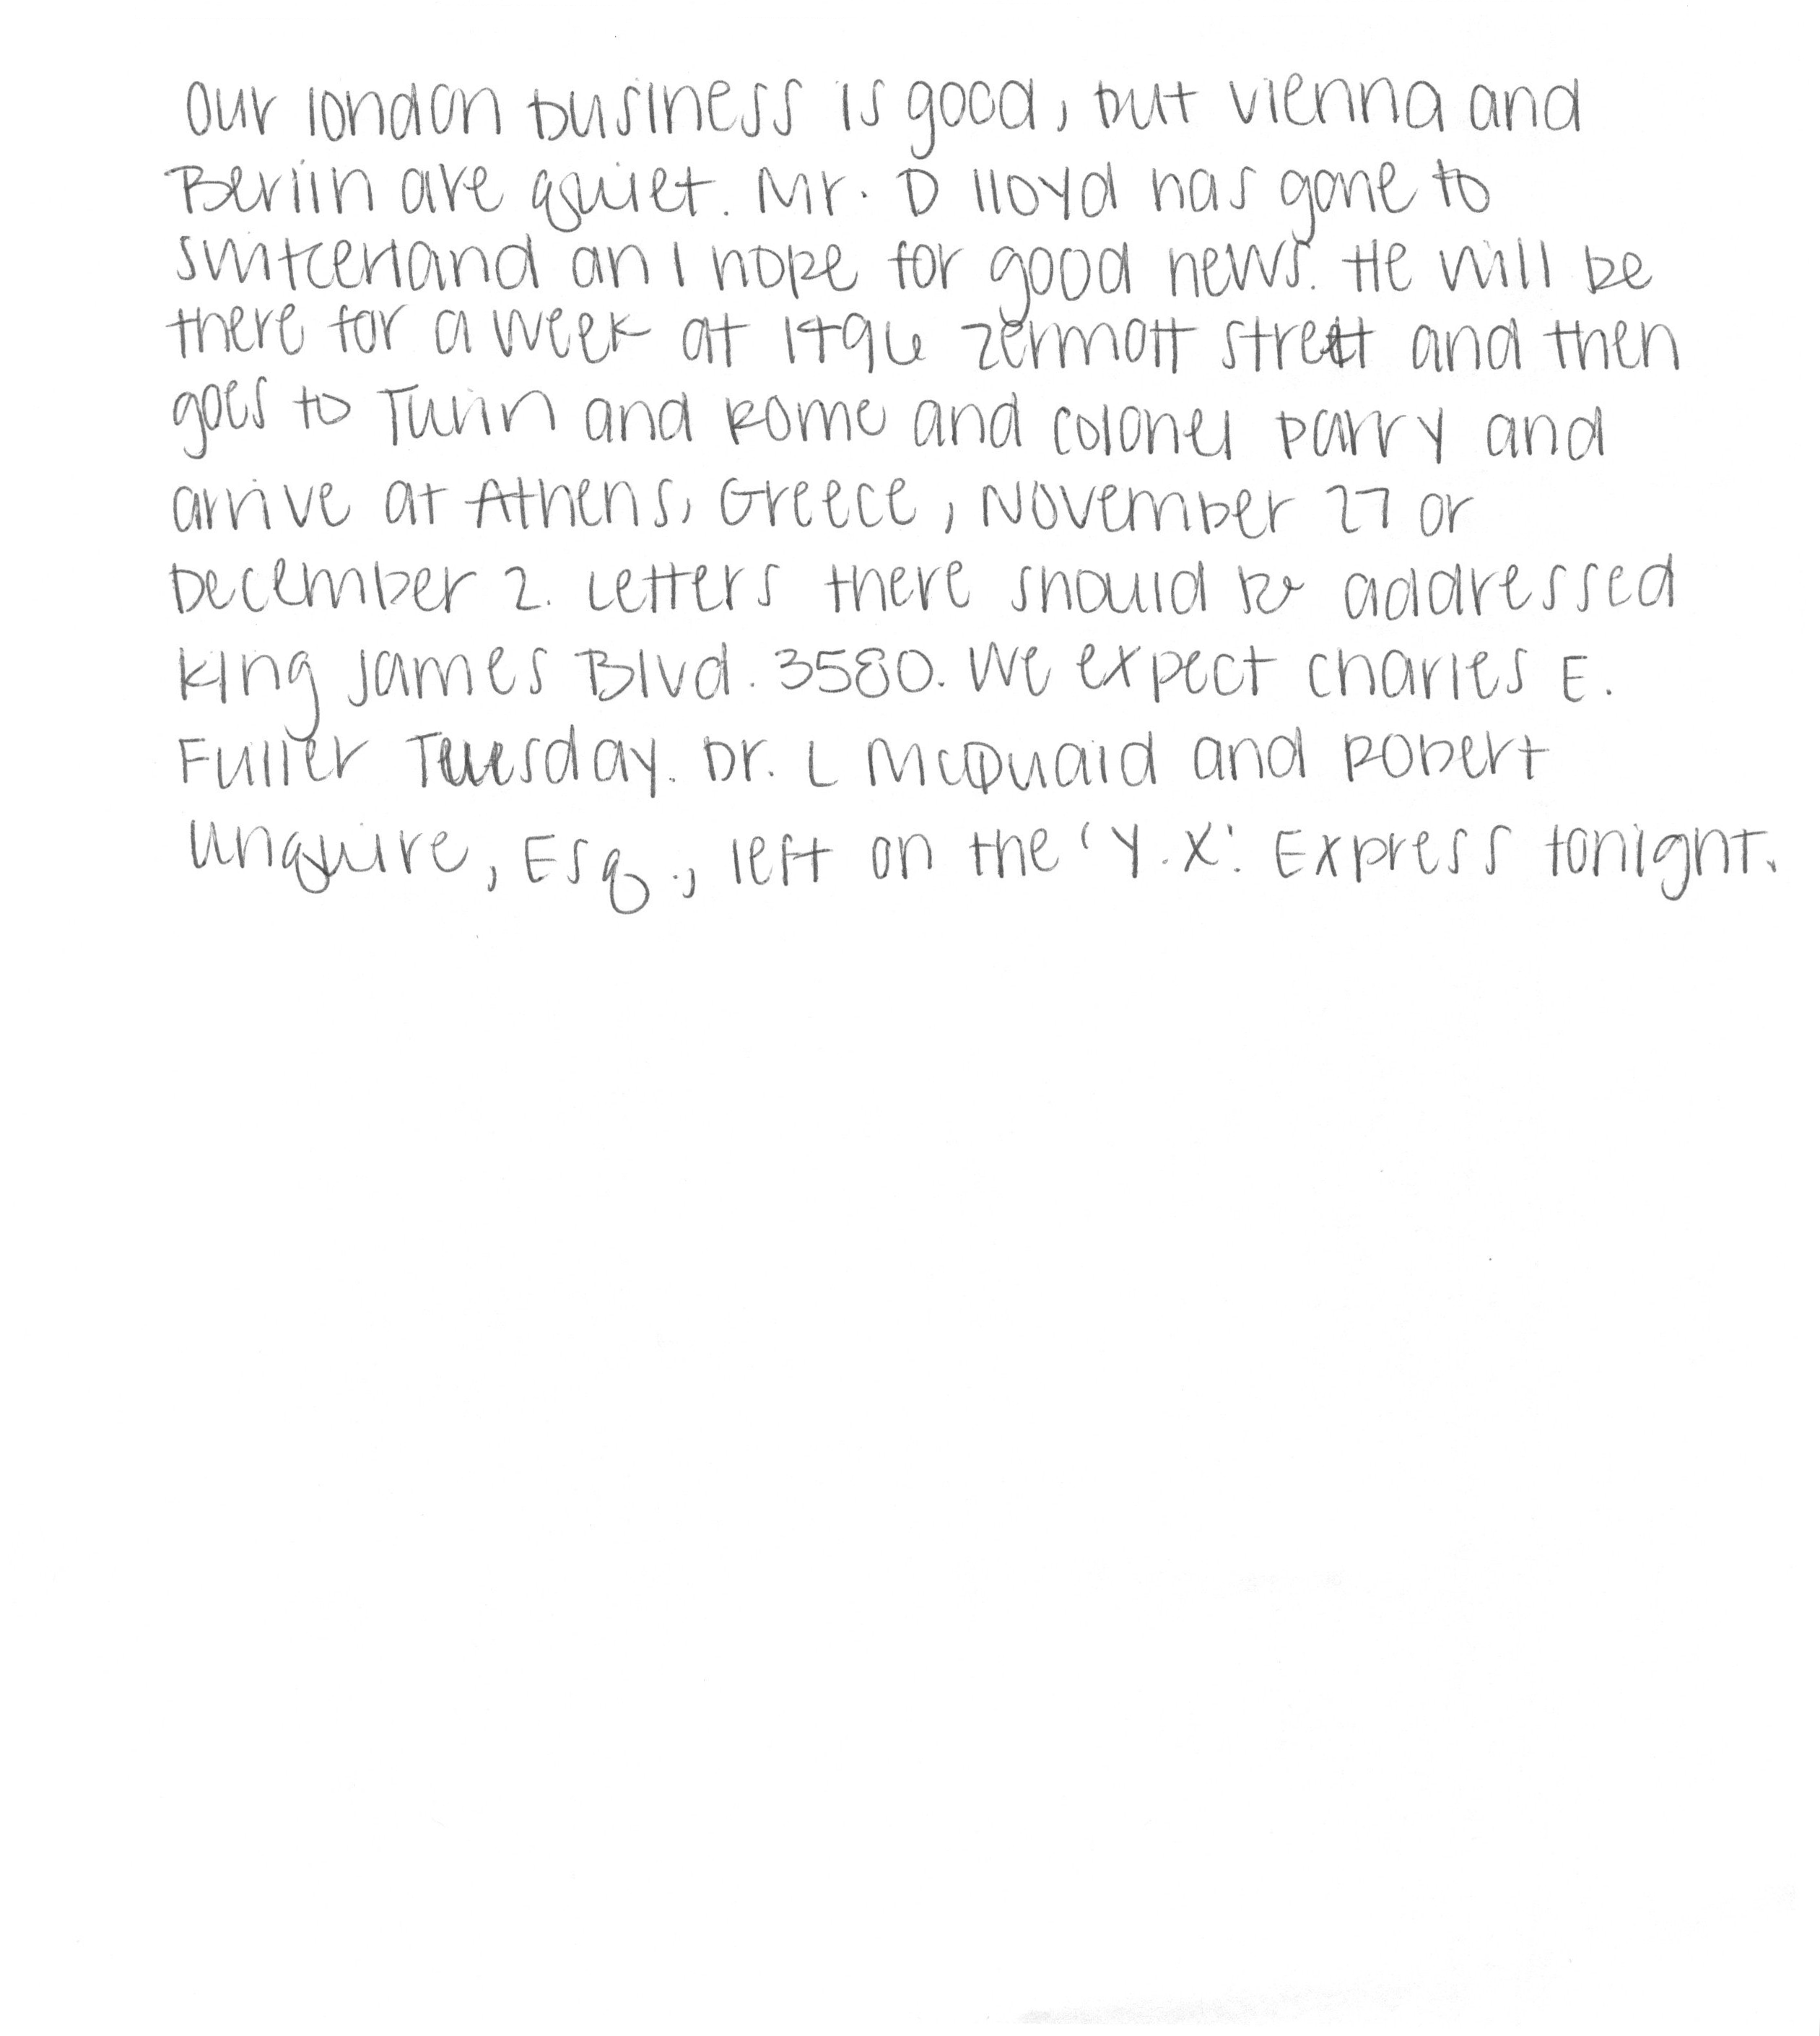 Our london business is good, but vienna and
Berlin are quiet. Mr. D lloyd has gone to
switcerland an I hope for good news. He will be
there for a week at 1496 zermott street and then
goes to Turin and Rome and colonel parry and
arrive at Athens, Greece, November 27 or
December 2. Letters there should be addressed
King James Blvd. 3580. We expect charles E.
Fuller Tuesday. Dr. L McQuaid and Robert
Unquire, Esq., left on the 'Y.X'. Express tonight.